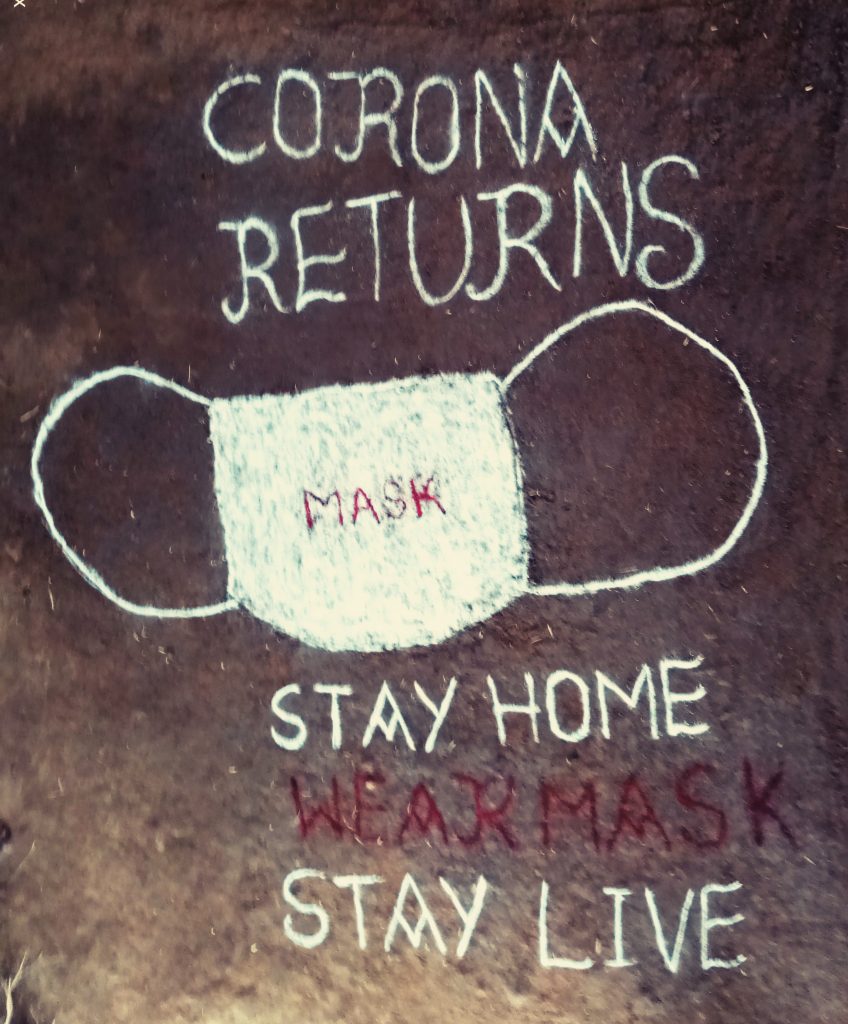 CORONA
RETURNS
MASK
STAY HOME
WEAR MASK
STAY LIVE